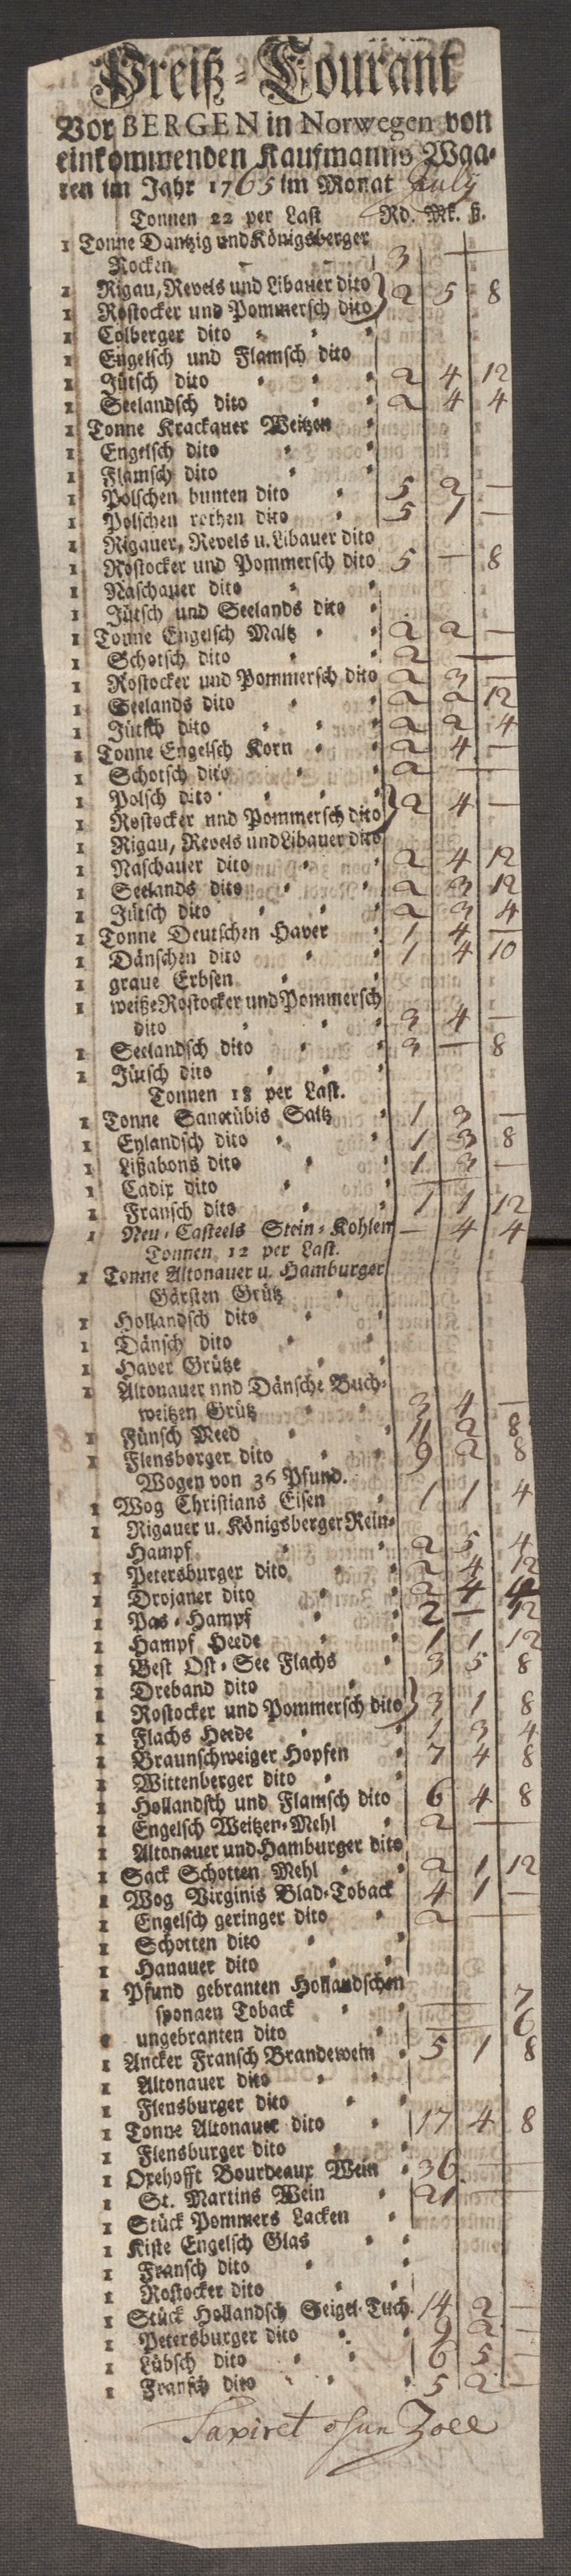 Preiß-Courant
Vor BERGEN in Norwegen von
einkommenden Kaufmanns Waa-
ren im Jahr 1765 im Monat July
Tonnen 22 per Last Rd. Mk. ß.
1 Tonne Dantzig und Königsberger
Rocken 3 —
1 Rigau, Revels und Libauer dito
1 Rostocker und Pommersch dito } 2 5 8
1 Colberger dito
1 Engelsch und Flamsch dito
1 Jütsch dito 2 4 12
1 Seelandsch dito 2 4 4
1 Tonne Krackauer Weitzen
1 Engelsch dito
1 Flamsch dito
1 Polschen bunten dito 5 2 —
1 Polschen rothen dito 5 1 —
1 Rigauer, Revels u. Libauer dito
1 Rostocker und Pommersch dito 5 — 8
1 Naschauer dito
1 Jütsch und Seelands dito
1 Tonne Engelsch Maltz 2 2 —
1 Schotsch dito 2 —
1 Rostocker und Pommersch dito 2 3 —
1 Seelands dito 2 2 12
1 Jütsch dito 2 2 4
1 Tonne Engelsch Korn 2 4 —
1 Schotsch dito 2 —
1 Polsch dito
1 Rostocker und Pommersch dito } 2 4 —
1 Rigau, Revels und Libauer dito
1 Naschauer dito 2 4 12
1 Seelands dito 2 3 12
1 Jütsch dito 2 3 4
1 Tonne Deutschen Haver 1 4 —
1 Dänschen dito 1 4 10
1 graue Erbsen
1 weiße Rostocker und Pommersch
dito 3 4 —
1 Seelandsch dito 3 — 8
1 Jütsch dito
Tonnen 18 per Last.
1 Tonne Sanctübis Saltz 1 3 —
1 Eylandsch dito 1 3 8
1 Lißabons dito 1 3 —
1 Cadix dito —
1 Fransch dito 1 1 12
1 Neu-Casteels Stein-Kohlen — 4 4
Tonnen 12 per Last.
1 Tonne Altonauer u. Hamburger
Gärsten Grütz
1 Hollandsch dito
1 Dänsch dito
1 Haver Grütze
1 Altonauer nnd Dänsche Buch-
weitzen Grütz 3 4 —
1 Fünsch Meed 11 2 8
1 Flensborger dito 9 2 8
Wogen von 36 Pfund.
1 Wog Christians Eisen 1 1 4
1 Rigauer u. Königsberger Rein-
Hampf 2 5 4
1 Petersburger dito 2 4 12
1 Drojaner dito 2 4
1 Pas-Hampf 2 — 12
1 Hampf Heede 1 1 12
1 Best Ost-See Flachs 3 5 8
1 Dreband dito
1 Rostocker und Pommersch dito } 3 1 8
1 Flachs Heede 1 3 4
1 Braunschweiger Hopfen 7 4 8
1 Wittenberger dito
1 Hollandsch und Flamsch dito 6 4 8
1 Engelsch Weitzen-Mehl 2 —
1 Altonauer und Hamburger dito
1 Sack Schotten Mehl 2 1 12
1 Wog Virginis Blad-Toback 4 1 —
1 Engelsch geringer dito 2 —
1 Schotten dito
1 Hanauer dito
1 Pfund gebranten Hollandschen
sponnen Toback — 7
ungebranten dito — 6
1 Ancker Fransch Brandewein 5 1 8
1 Altonauer dito
1 Flensburger dito
1 Tonne Altonauer dito 17 4 8
1 Flensburger dito
1 Oxehofft Bourdeaux Wein 36 —
1 St. Martins Wein 21 —
1 Stück Pommers Lacken
1 Kiste Engelsch Glas
1 Fransch dito
1 Rostocker dito
1 Stück Hollandsch Seigel-Tuch 14 2 —
1 Petersburger dito 9 2 —
1 Lübsch dito 6 5 —
1 Fransch dito 5 2 —
Taxiret ohun Zoll